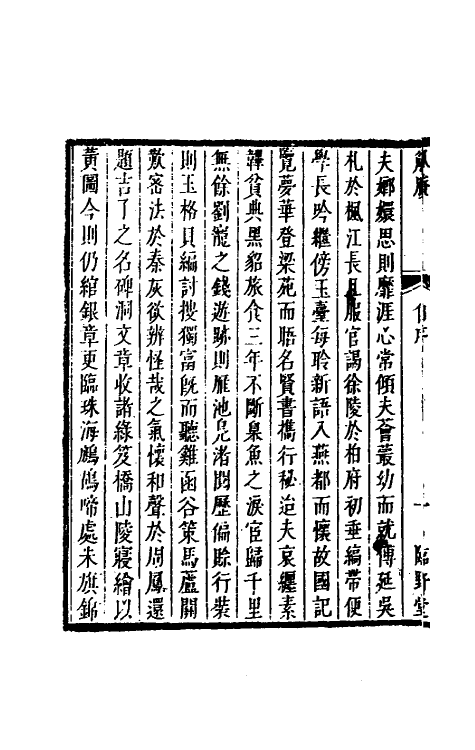 夫嫏嬛思則靡涯心常傾夫薈叢幼而就傅延吳
札於楓江長且服官謁徐陵於柏府初垂縞帶便
學長吟繼傍玉臺每聆新語入燕都而懷故國記
覽夢華登梁苑而晤名賢書攜行秘迨夫哀纏素
鞸貧典黑貂旅食三年不斷臯魚之淚宦歸千里
無餘劉寵之錢遊跡則雁池凫渚閱歷偏賒行裝
則玉格貝編討搜獨富旣而聽雞函谷策馬蘆關
欬審法於秦灰欲辨怪哉之氣懷和聲於周鳳還
題吉了之名碑洞文章收諸綠笈橋山陵寢繪以
黃圖今則仍綰銀章更臨珠海鷓鴣啼處朱旗錦
序
臨野堂